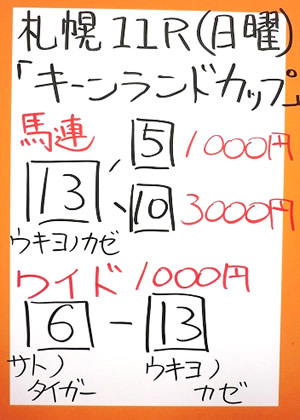 札幌11R(日曜)
「キーンランドカップ」
馬連 5 1000円
13 10 3000円
ウキヨノカゼ
ワイド 1000円
6 - 13
サトノ ウキヨノ
タイガー カゼ